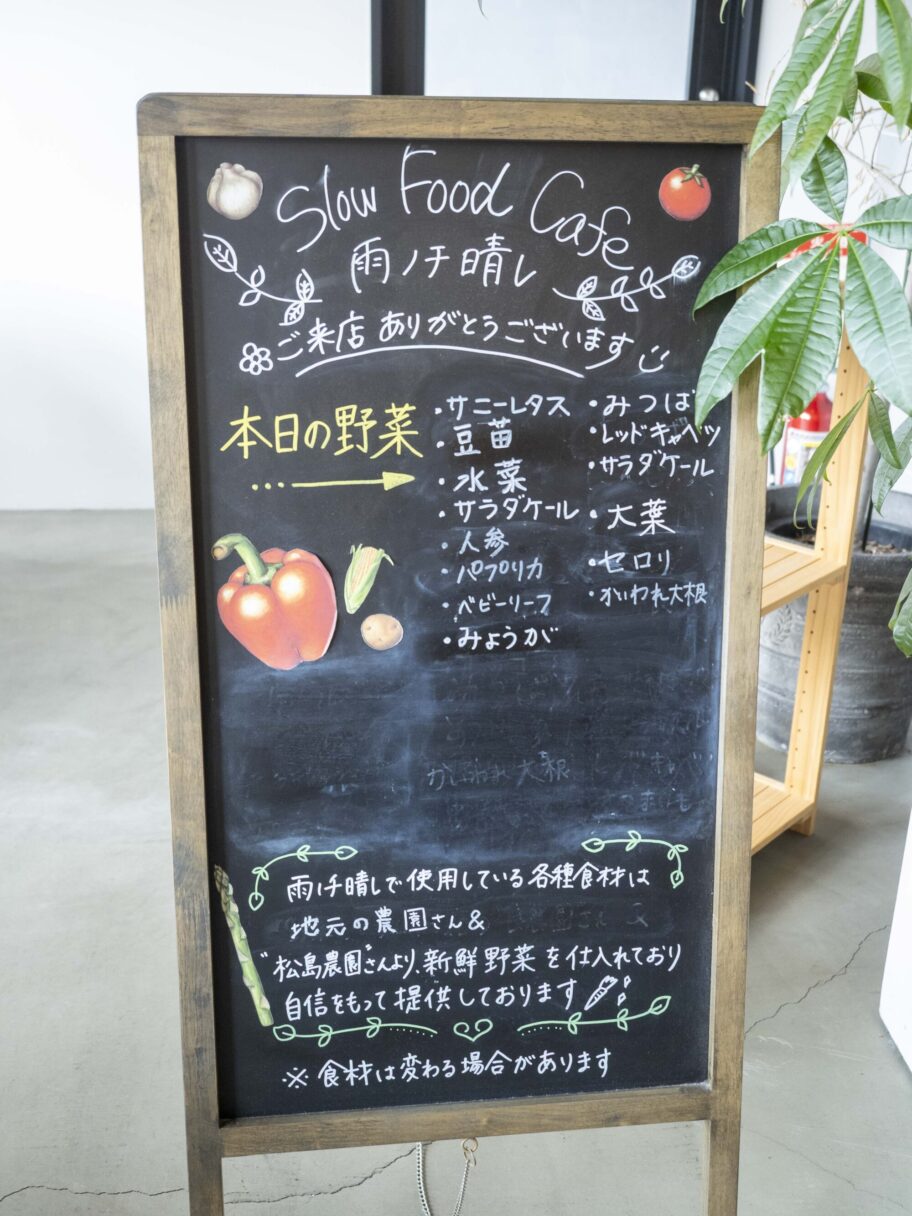 Slow Food Cafe
雨ノチ晴レ
ご来店ありがとうございます
本日の野菜
・サニーレタス
・豆苗
・水菜
・サラダケール
・人参
・パプリカ
・ベビーリーフ
・みょうが
・みつば
・レッドキャベツ
・サラダケール
・大葉
・セロリ
・かいわれ大根
かいわれ大根
雨ノチ晴レで使用している各種食材は
地元の農園さん&
"松島農園"さんより、新鮮野菜を仕入れており
自信をもって提供しております
※食材は変わる場合があります